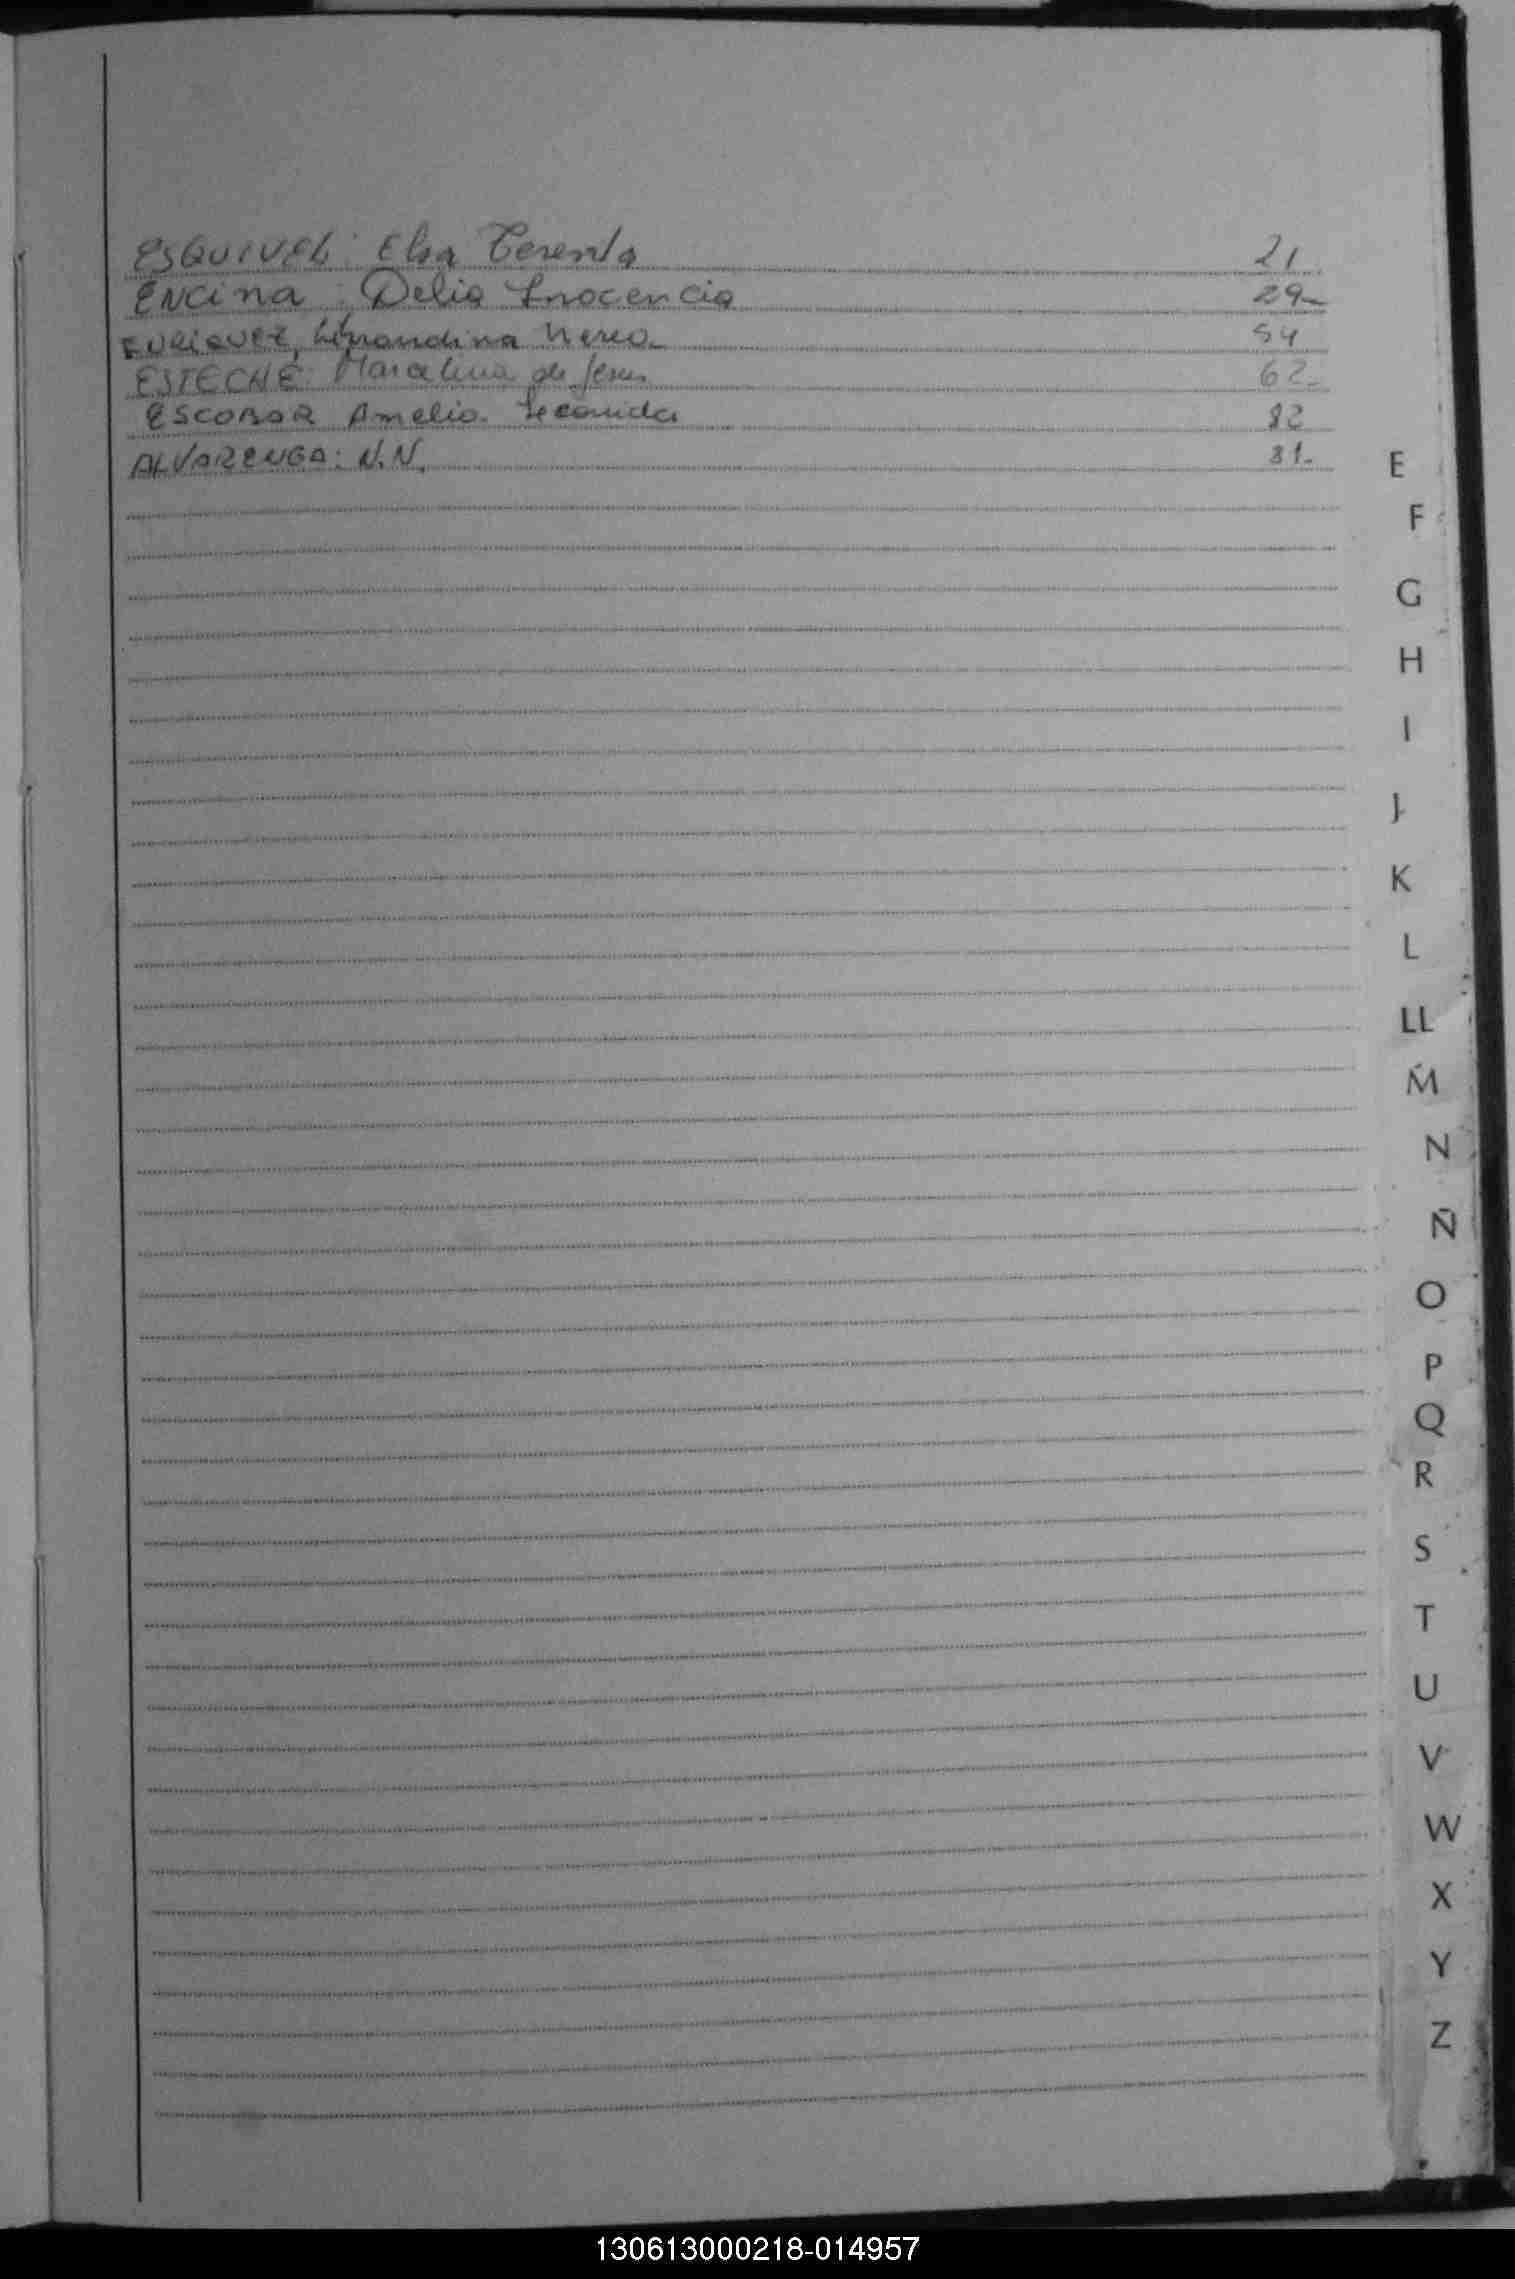 ESQUIVEL: Elsa Teresita 21
ENCINA: Delia Inocencia 29-
ENRIQUEZ, Nerea 54
ESTECHE: Marcelina de Jesus 62-
ESCOBAR Amelia Secundia 82
ALVARENGA: N.N. 81-
E
F
G
H
I
J
K
L
LL
M
N
Ñ
O
P
Q
R
S
T
U
V
W
X
Y
Z
130613000218-014957